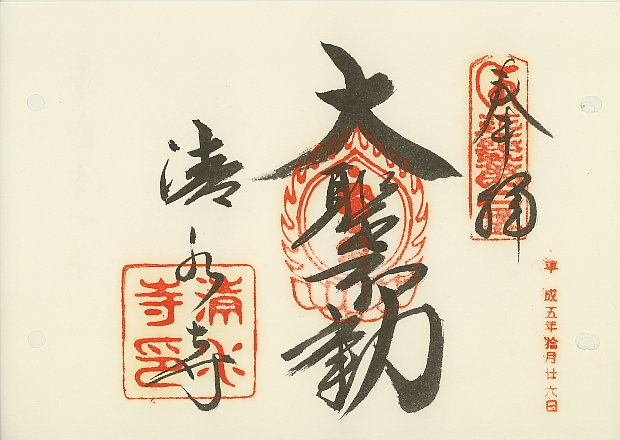 奉拝
平成五年拾月廿六日
大聖不動
清水寺
清水寺印